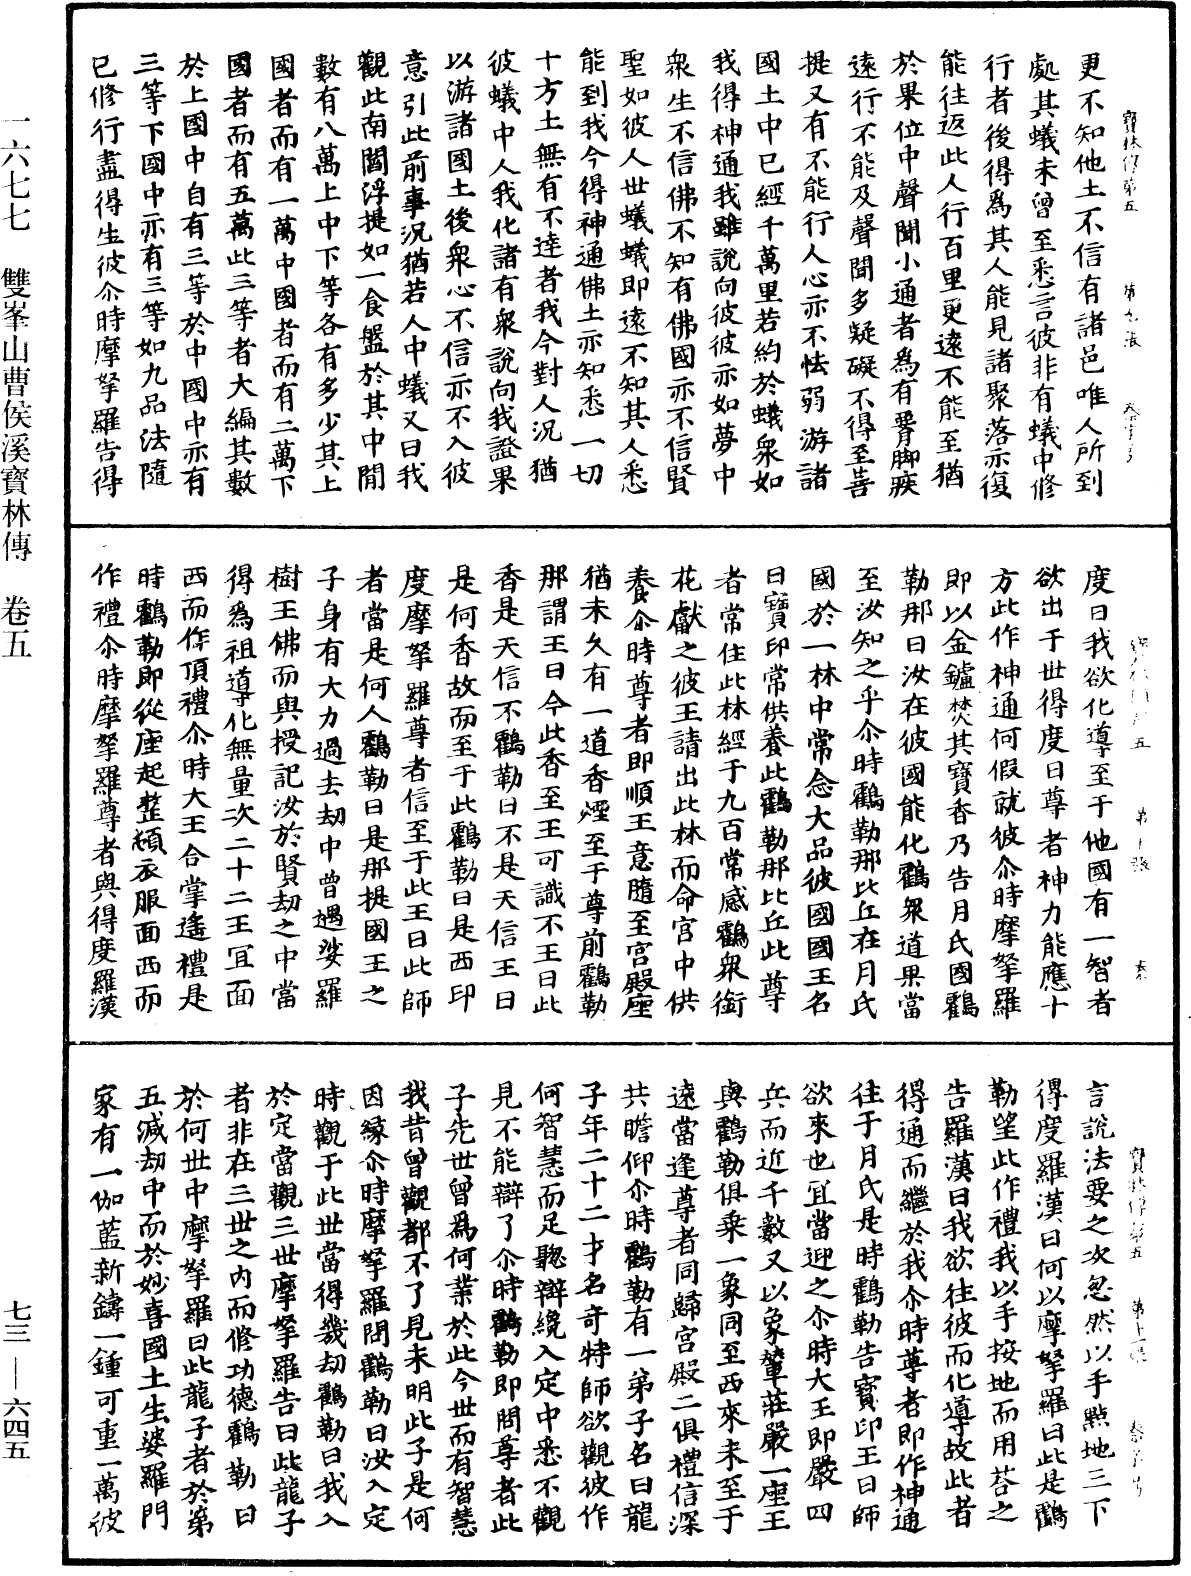 寶林傳第五
更不知他土不信有諸邑唯人所到
處其蟻未曾至悉言彼非有蟻中修
行者後得為其人能見諸聚落亦復
能往返此人行百里更遠不能至猶
於果位中聲聞小通者為有脚疾
遠行不能及聲聞多疑礙不得至菩
提又有不能行人心亦不怯弱游諸
國土中已經千萬里若約於蟻衆如
我得神通我雖說向彼彼亦如夢中
衆生不信佛不知有佛國亦不信賢
聖如彼人世蟻蟻即遠不知其人悉
能到我今得神通佛土亦知悉一切
十方土無有不達者我今對人況猶
彼蟻中人我化諸有衆說向我證果
以游諸國土後衆心不信亦不入彼
意引此前事況猶若人中蟻又曰我
觀此南閻浮提如一食盤於其中間
數有八萬上中下等各有多少其上
國者而有一萬中國者而有二萬下
國者而有五萬此三等者大編其數
於上國中自有三等於中國中亦有
三等下國中亦有三等如九品法隨
已修行盡得生彼尒時摩拏羅告得
度曰我欲化導至于他國有一智者
欲出于世得度曰尊者神力能應十
方此作神通何假就彼尒時摩拏羅
即以金鑪焚其寶香乃告月氏國鸖
勒那曰汝在彼國能化鸖衆道果當
至汝知之乎尒時鸖勒那比丘在月氏
國於一林中常念大品彼國國王名
曰寶印常供養此鸖勒那比丘此尊
者常住此林經于九百常感鸖衆銜
花獻之彼王請出此林而命宮中供
養尒時尊者即順王意隨至宮殿座
猶未久有一道香煙至于尊前鸖勒
那謂王曰今此香至王可識不王曰此
香是天信不鸖勒曰不是天信王曰
是何香故而至于此鸖勒曰是西印
度摩拏羅尊者信至于此王曰此師
者當是何人鸖勒曰是那提國王之
子身有大力過去劫中曾遇娑羅
樹王佛而與授記汝於賢劫之中當
得為祖導化無量次二十二王宜面
西而作頂禮尒時大王合掌遙禮是
時鸖勒即從座起整頓衣服面西而
作禮尒時摩拏羅尊者與得度羅漢
寶林傳第五
言說法要之次忽然以手點地三下
得度羅漢曰何以摩拏羅曰此是鸖
勒望此作禮我以手按地而用荅之
告羅漢曰我欲往彼而化導故此者
得通而繼於我尒時尊者即作神通
往于月氏是時鸖勒告寶印王曰師
欲來也宜當迎之尒時大王即嚴四
兵而近千數又以象輦莊嚴一座王
與鸖勒俱乗一象同至西來未至于
遠當逢尊者同歸宮殿二俱禮信深
共瞻仰尒時鸖勒有一弟子名曰龍
子年二十二才名奇特師欲觀彼作
何智慧而足聽辯纔入定中悉不觀
見不能辯了尒時鸖勒即問尊者此
子先世曾為何業於此今世而有智慧
我昔曾觀都不了見未明此子是何
因緣尒時摩拏羅問鸖勒曰汝入定
時觀于此世當得幾劫鸖勒曰我入
於定當觀三世摩拏羅告曰此龍子
者非在三世之內而修功德鸖勒曰
於何世中摩拏羅曰此龍子者於第
五減劫中而於妙喜國土生婆羅門
家有一伽藍新鑄一鍾可重一萬彼
一六七七　雙峯山曹侯溪寶林傳　卷五
七三—六四五